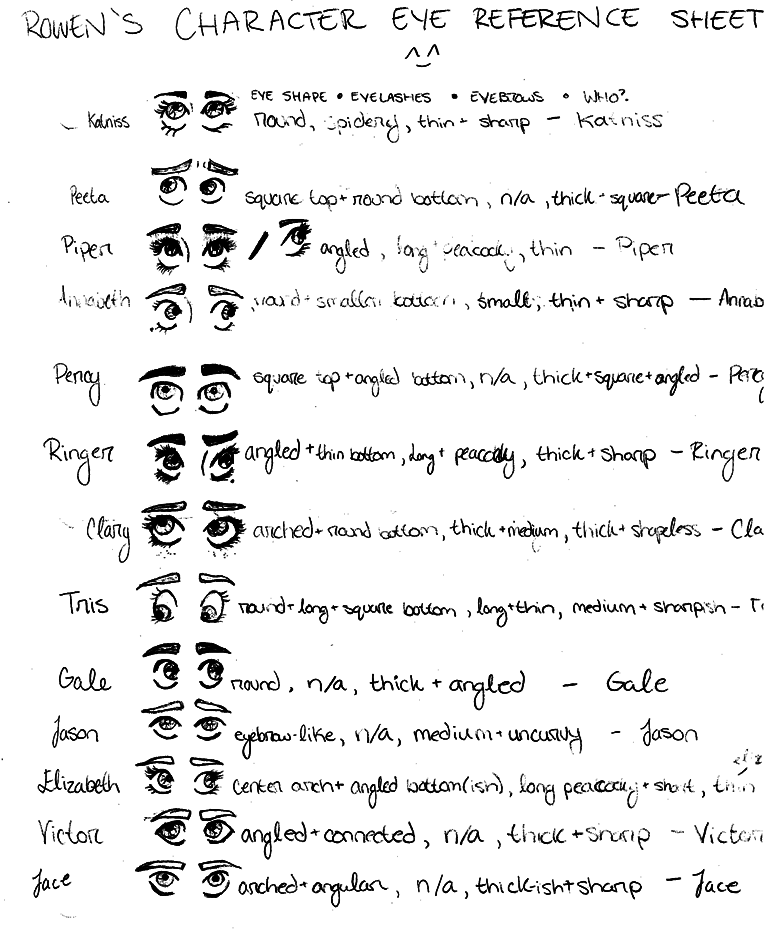 ROWEN'S CHARACTER EYE REFERENCE SHEET
^_^
EYE SHAPE • EYELASHES • EYEBROWS • WHO?
Katniss round, spidery, thin + sharp - Katniss
Peeta square top + round bottom, n/a, thick + square - Peeta
Piper / angled, long + peacocky, thin - Piper
Annabeth round + smaller bottom, small, thin + sharp - Annab
Percy square top + angled bottom, n/a, thick + square + angled - Perc
Ringer angled + thin bottom, long + peacocky, thick + sharp - Ringer
Clary arched + round bottom, thick + medium, thick + shapeless - Cla
Tris round + long + square bottom, long + thin, medium + sharpish - T
Gale round, n/a, thick + angled - Gale
Jason eyebrow-like, n/a, medium + uncurvy - Jason
Elizabeth center arch + angled bottom(ish), long peacocky + short, thin
Victor angled + connected, n/a, thick + sharp - Victor
Jace arched + angular, n/a, thick-ish + sharp - Jace